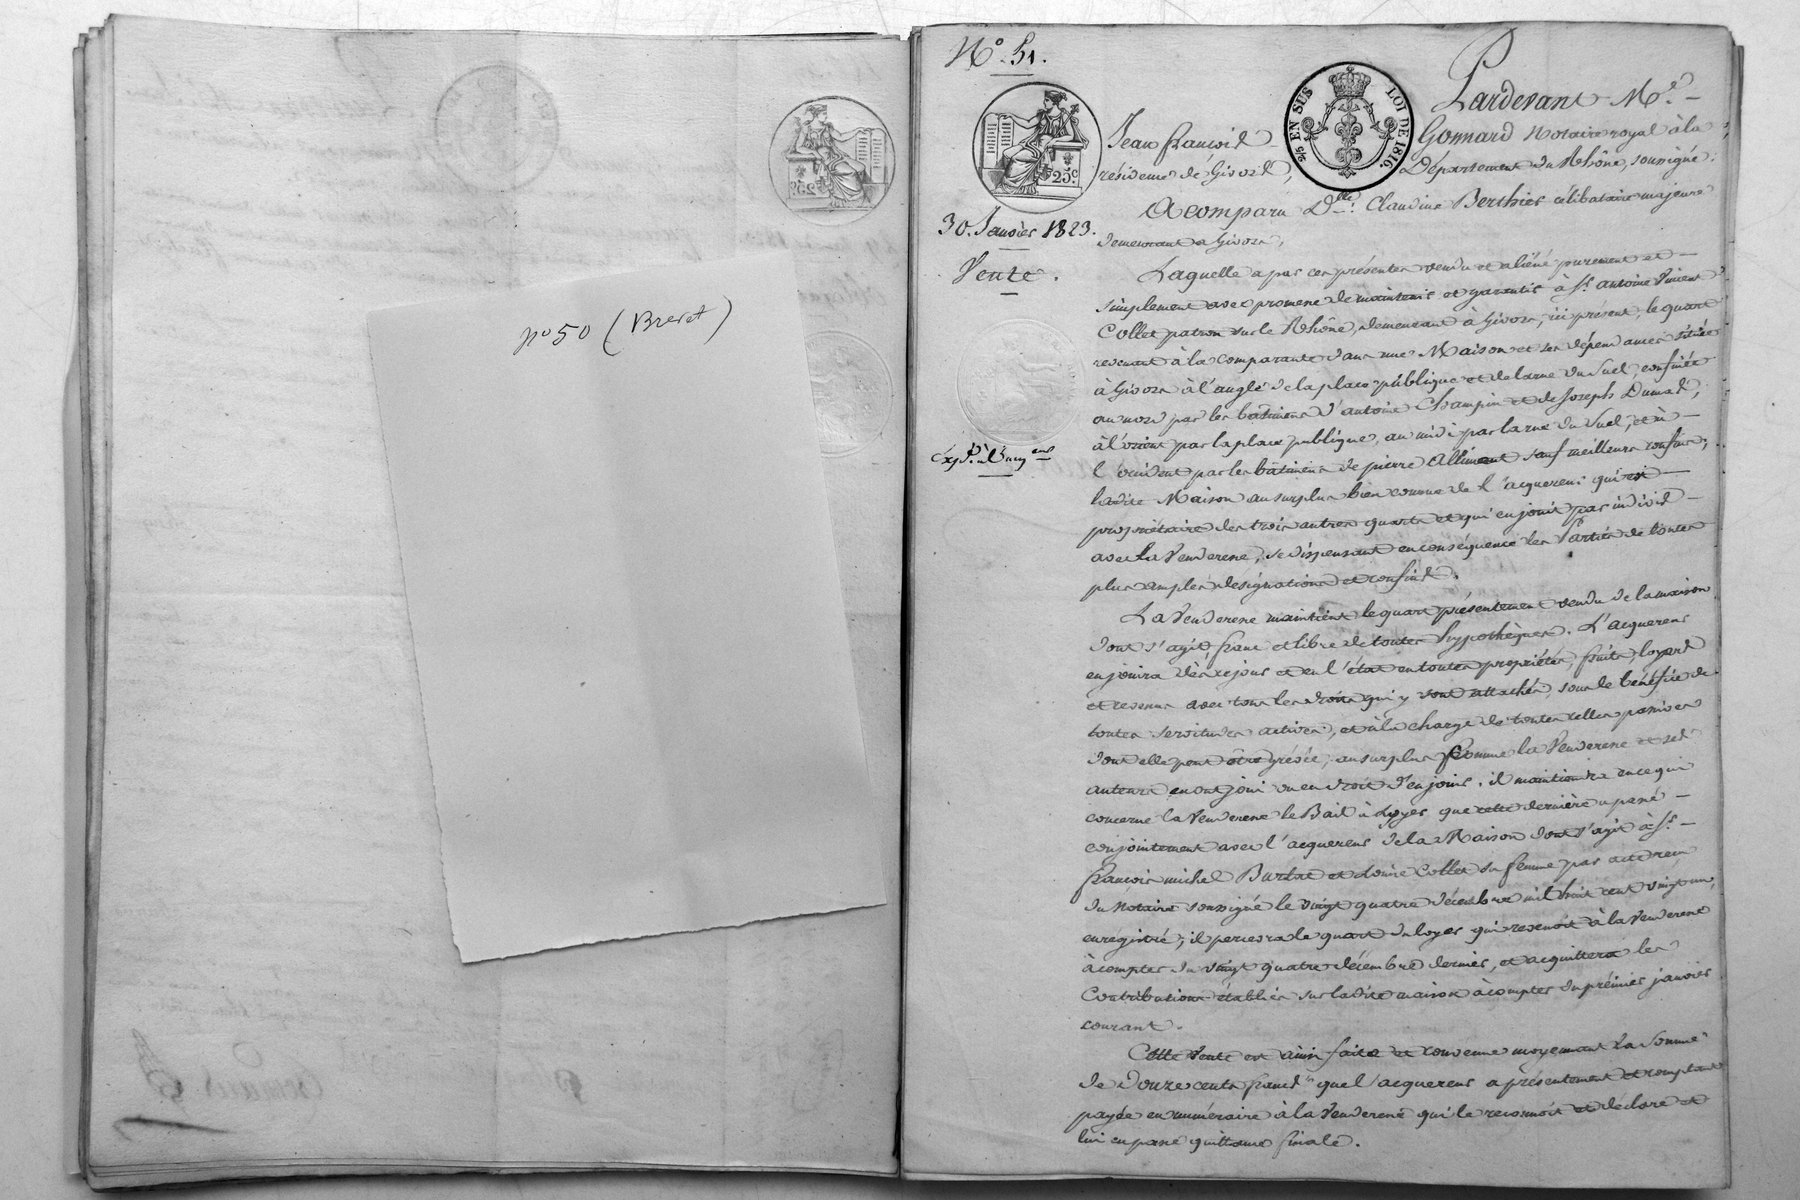 nº 50 (Brevet)
Nº. 51.
25 EN SUS
LOI DE 1816.
25ᶜ
30. Janvier 1823.
Vente.
Pardevant Mᵉ.
Jean françois Gonnard Notaire royal à la
résidence de Givors, Département du Rhône, soussigné.
A comparu Dˡˡᵉ. Claudine Berthier célibataire majeure
demeurant à Givors,
Laquelle a par ces présentes vendu et aliéné purement et
simplement avec promesse de maintenir et garantir à Sʳ. antoine Vincent
Collet patron sur le Rhône, demeurant à Givors, ici présent, le quart
revenant à la comparante dans une Maison et ses dépendances située
à Givors à l'angle de la place publique et de la rue du Suel, confinée
au nord par les bâtimens d'antoine Champin et de Joseph Dumas,
à l'orient par la place publique, au midi par la rue du Suel, et à
l'occident par les bâtimens de pierre Alliment sauf meilleurs confins;
ladite Maison au surplus bien connue de l'acquereur qui est
propriétaire des trois autres quarts et qui en jouit par indivis
avec la Venderesse, se dispensant en conséquence les Parties de toutes
plus amples désignations et confins.
La Venderesse maintient le quart présentement vendu de la maison
dont s'agit, franc et libre de toutes hypothèques. L'acquereur
en jouira dès ce jour et en l'état en toutes propriétés, fruits, loyers
et revenus avec tous les droits qui y sont attachés, sous le bénéfice de
toutes servitudes actives, et à la charge de toutes celles passives
dont elle peut être grévée, au surplus comme la Venderesse et ses
auteurs en ont joui ou eu droit d'en jouir. il maintiendra en ce qui
concerne la Venderesse le Bail à Loyer que cette dernière a passé
conjointement avec l'acquereur de la Maison dont s'agit à Sʳ.
françois michel Burlat et Louise Collet sa femme par acte reçu
du Notaire soussigné le vingt quatre décembre mil huit cent vingt un,
enregistré; il percevra le quart du loyer qui revenoit à la Venderesse
à compter du vingt quatre décembre dernier, et acquittera les
Contributions établies sur ladite maison à compter du prémier janvier
courant.
Cette Vente est ainsi faite et convenue moyennant la Somme
de Douze cents francs que l'acquereur a présentement et comptant
payée en numéraire à la Venderesse qui le reconnoit et déclare et
lui en passe quittance finale.